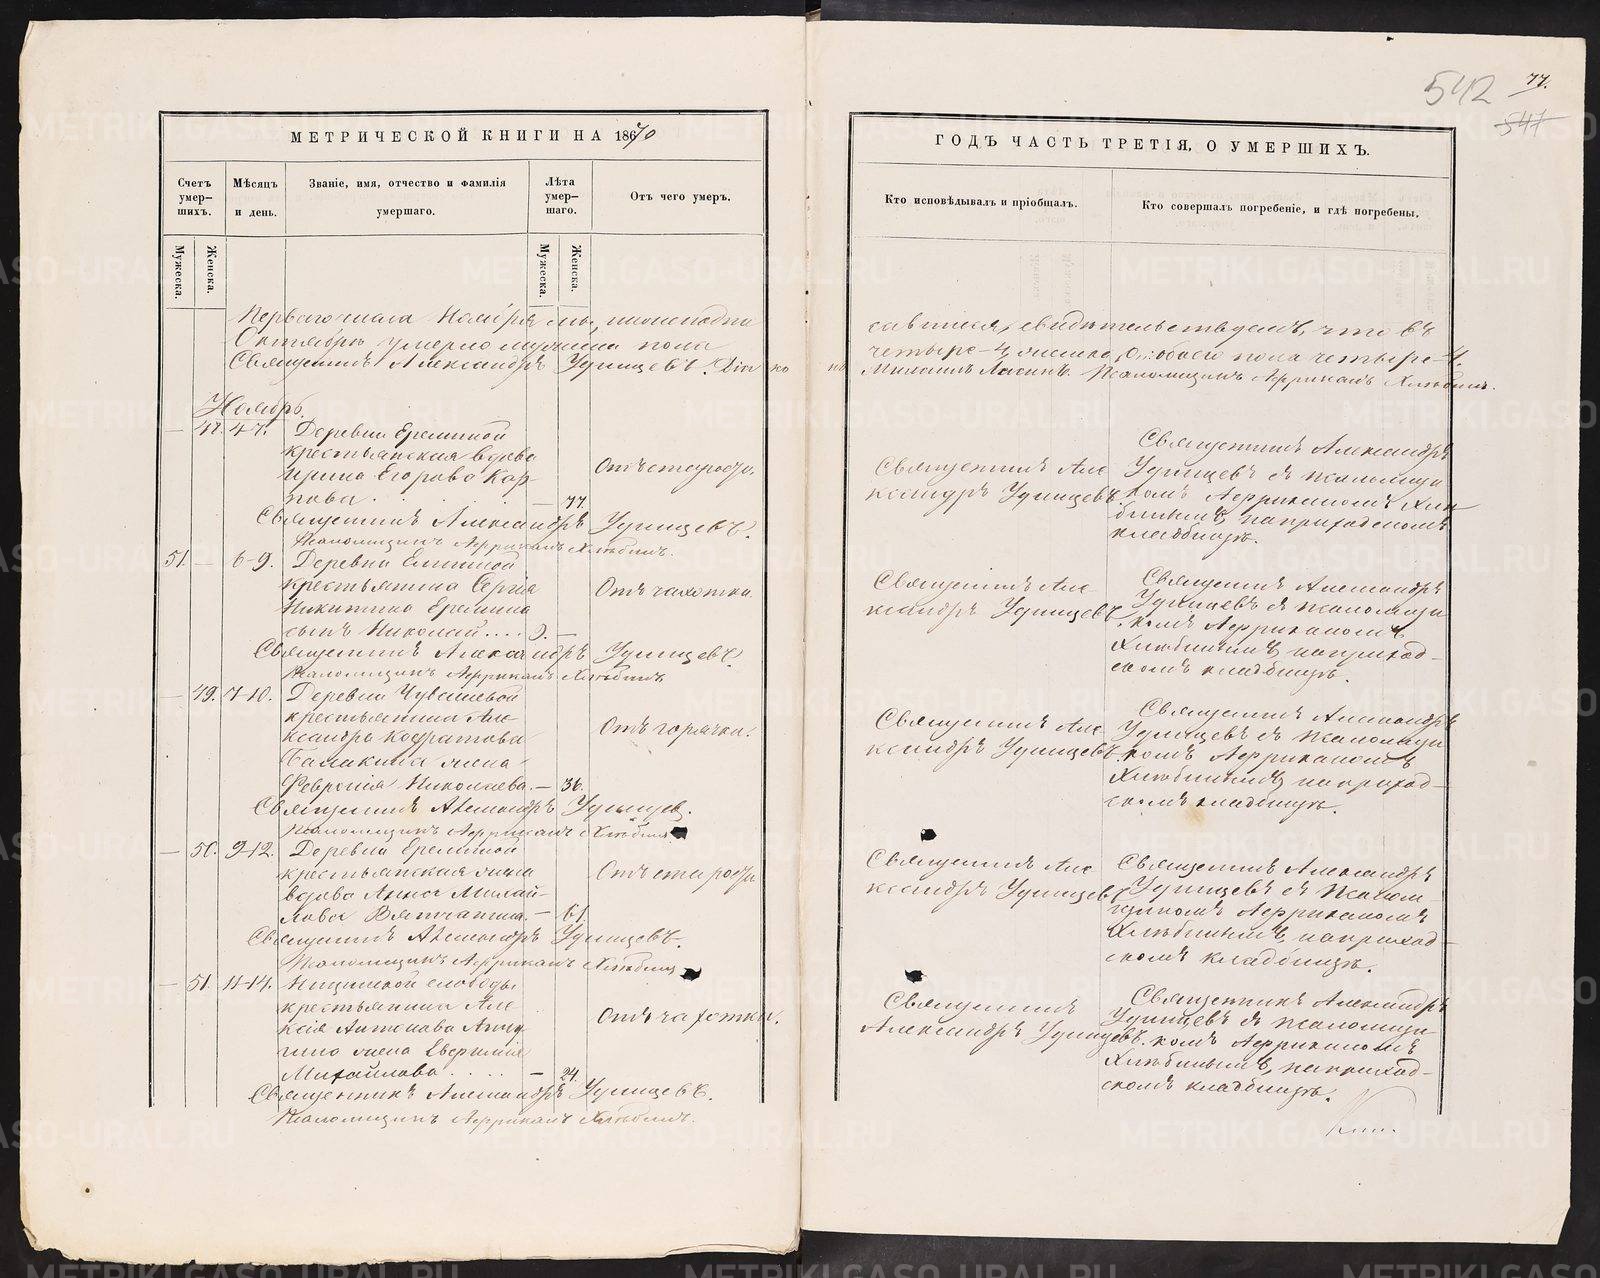 542
77.
547
МЕТРИЧЕСКОЙ КНИГИ НА 1870
ГОДЪ ЧАСТЬ ТРЕТІЯ, О УМЕРШИХЪ.
Счетъ умер-
шихъ.
Мѣсяцъ
и день.
Званіе, имя, отчество и фамилія
умершаго.
Лѣта
умер-
шаго.
Отъ чего умеръ.
Мужеска.
Женска.
Мужеска.
Женска.
Кто исповѣдывалъ и пріобщалъ.
Кто совершалъ погребеніе, и гдѣ погребены.
Перваго числа Ноября мы, нижеподпи
савшіеся, свидѣтельствуемъ, что въ
Октябрѣ умерло мужеска пола
четыре - 4, женска, обоего пола четыре - 4.
Священникъ Александръ Удинцевъ. Діаконъ
Псаломщикъ Африканъ Хлѣбинъ.
Ноябрь.
— 47. 4-7. Деревни Ереминой
крестьянская вдова
Ирина Егорова Кар-
пова. — 77.
Отъ старости.
Священникъ Але
ксандръ Удинцевъ
Священникъ Александръ
Удинцевъ съ псаломщи
комъ Африканомъ Хлѣ
бинымъ, на приходскомъ
кладбищѣ.
Священникъ Александръ Удинцевъ.
Псаломщикъ Африканъ Хлѣбинъ.
51. — 6-9. Деревни
крестьянина Сергія
Никитина Еремина
сынъ Николай.... —
Отъ чахотки.
Священникъ Але
ксандръ Удинцевъ.
Священникъ Александръ
Удинцевъ съ псаломщи
комъ Африканомъ
Хлѣбинымъ, на приход-
скомъ кладбищѣ.
Священникъ Александръ Удинцевъ.
Псаломщикъ Африканъ Хлѣбинъ
— 49. 7-10. Деревни Чувашевой
крестьянина Але
ксандра Кодратова
жена
Февронія Николаева. — 36.
Отъ горячки.
Священникъ Але
ксандръ Удинцевъ.
Священникъ Александръ
Удинцевъ съ псаломщи
комъ Африканомъ
Хлѣбинымъ, на приход-
скомъ кладбищѣ.
Священникъ Александръ Удинцев.
Псаломщикъ Африканъ Хлѣбинъ
— 50. 9-12. Деревни Ереминой
крестьянская жена
вдова Анна Михай-
лова Вятчанина. — 61.
Отъ старости
Священникъ Але
ксандръ Удинцевъ
Священникъ Александръ
Удинцевъ съ псалом-
щикомъ Африканомъ
Хлѣбинымъ, на приход-
скомъ кладбищѣ.
Священникъ Александръ Удинцевъ.
Псаломщикъ Африканъ Хлѣбинъ
— 51. 11-14. Ницинской слободы
крестьянина Але
ксія Антонова
жена Евфимія
Михайлова.... — 24.
Отъ чахотки.
Священникъ
Александръ Удинцевъ.
Священникъ Александръ
Удинцевъ съ псаломщи
комъ Африканомъ
Хлѣбинымъ, на приход-
скомъ кладбищѣ.
Священникъ Александръ Удинцевъ.
Псаломщикъ Африканъ Хлѣбинъ.
METRIKI.GASO-URAL.RU